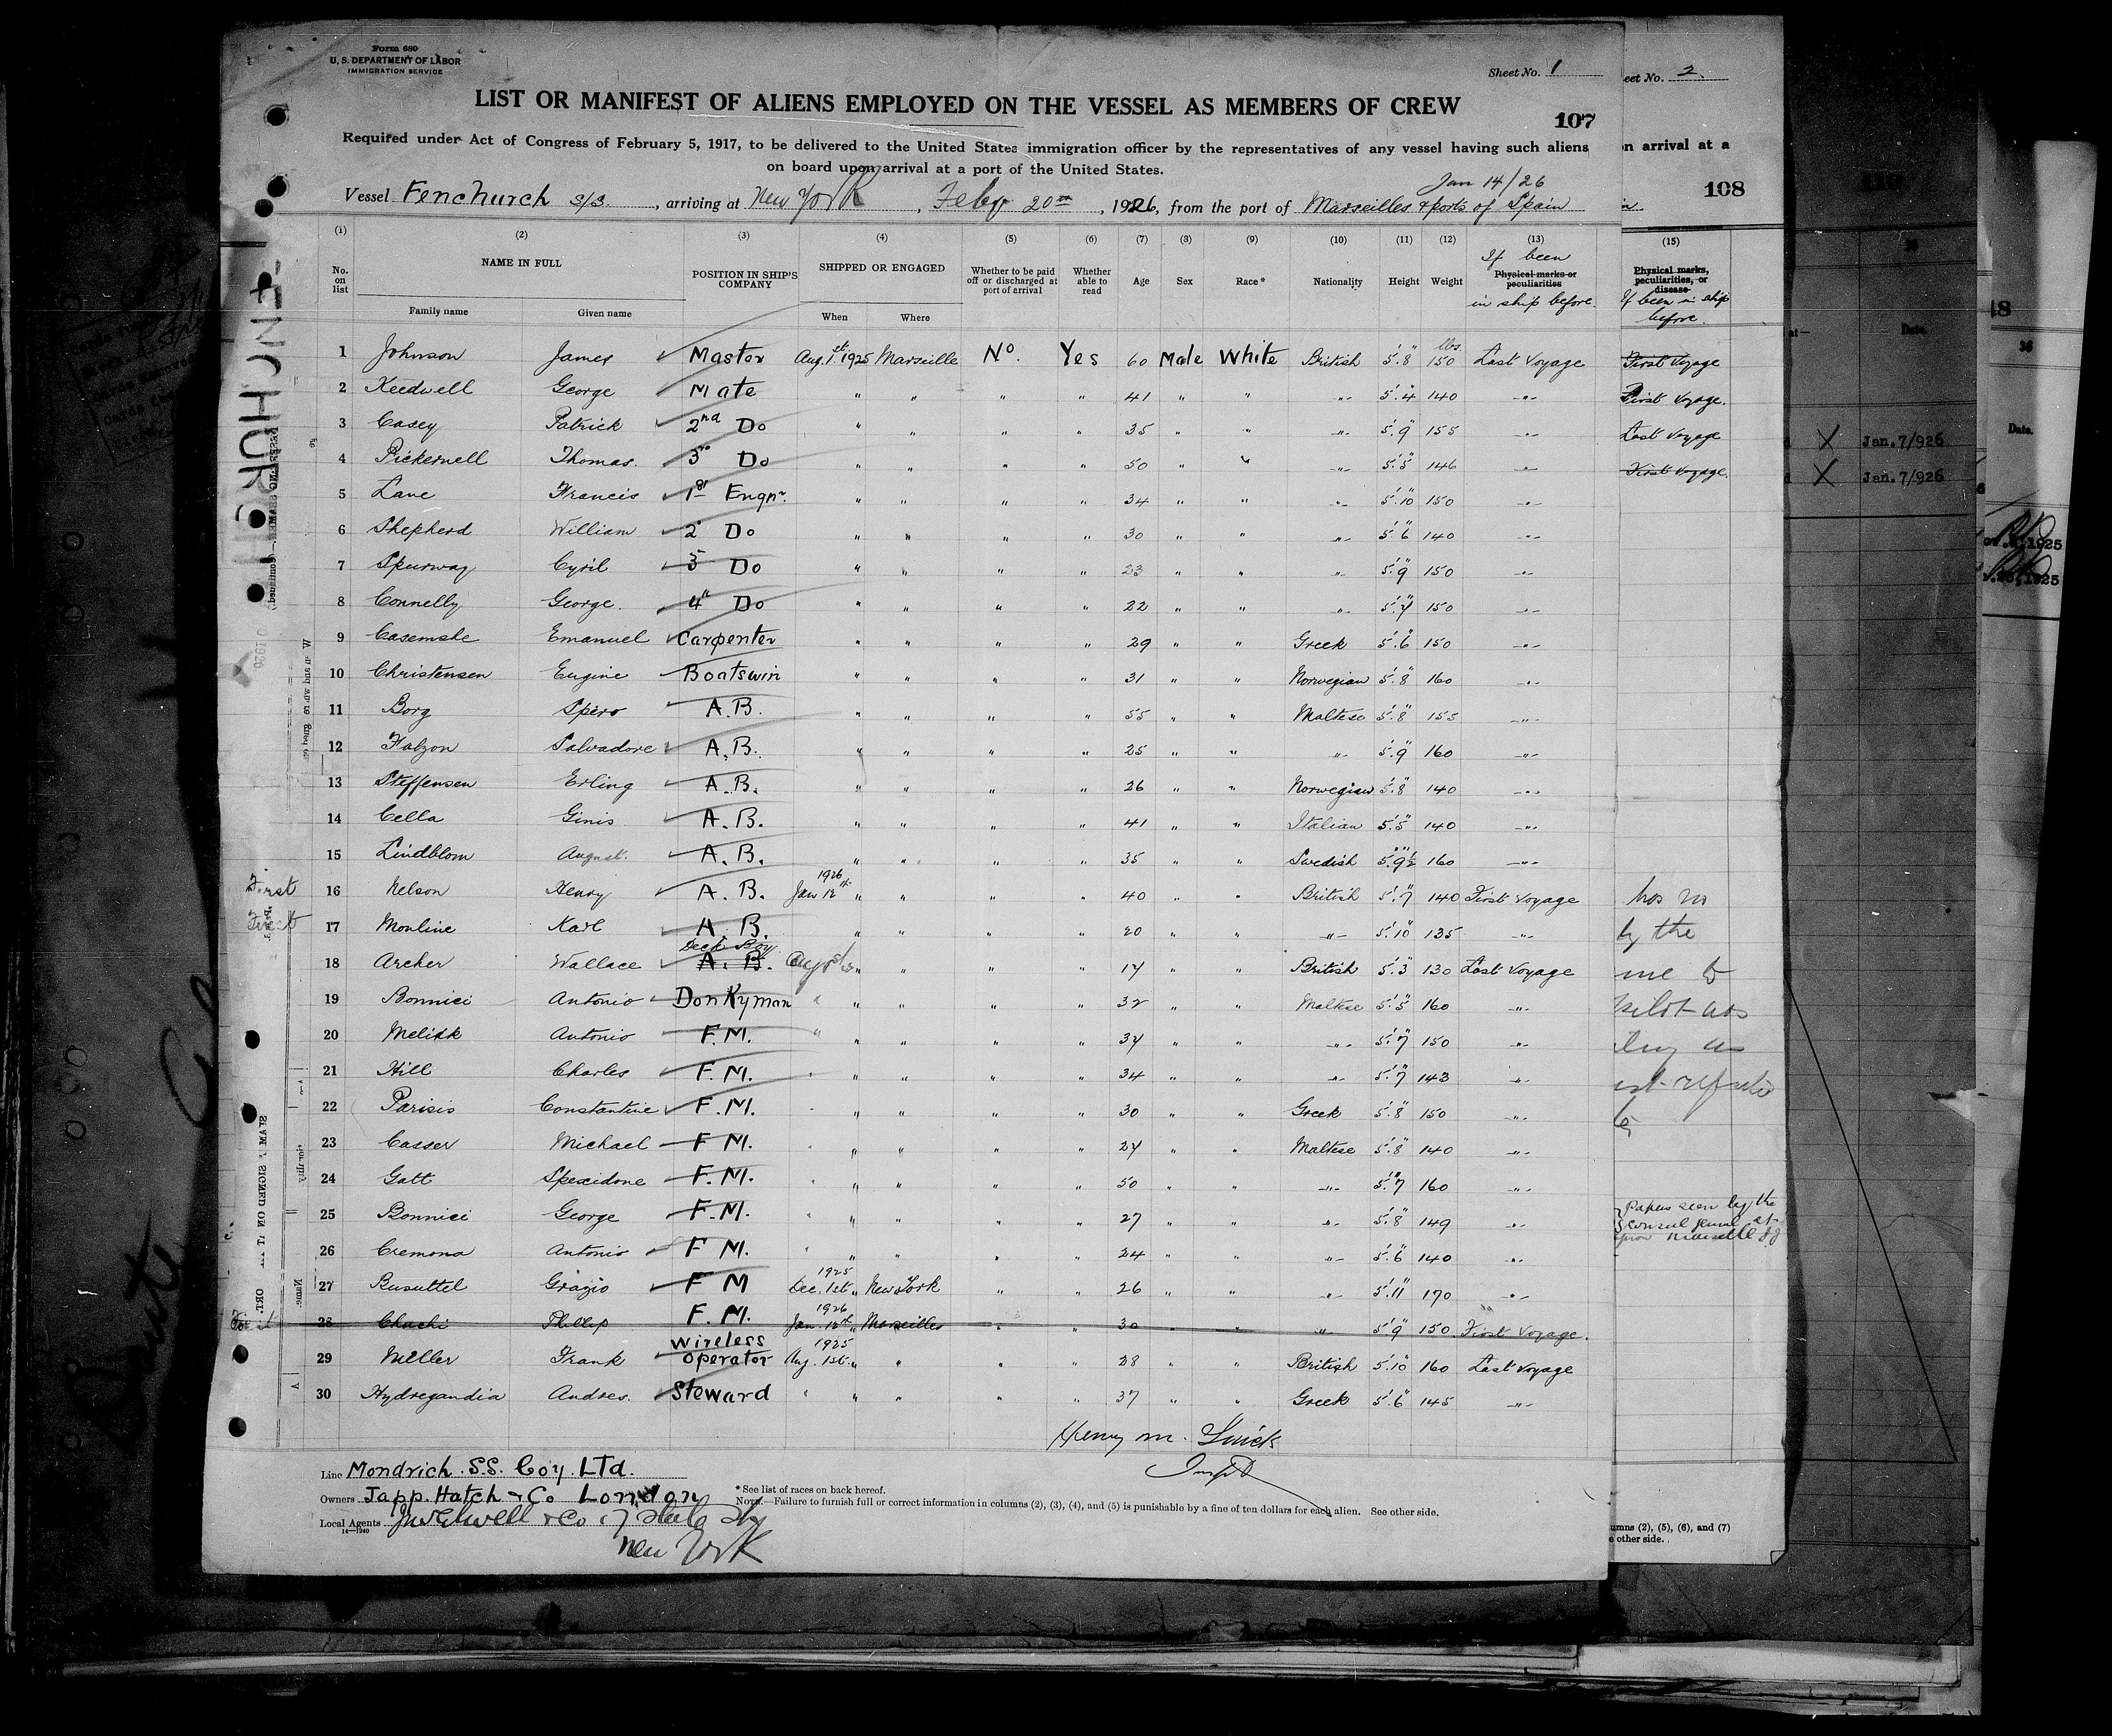 Form 680
U. S. DEPARTMENT OF LABOR
IMMIGRATION SERVICE
Sheet No. 1
LIST OR MANIFEST OF ALIENS EMPLOYED ON THE VESSEL AS MEMBERS OF CREW
107
Required under Act of Congress of February 5, 1917, to be delivered to the United States immigration officer by the representatives of any vessel having such aliens
on board upon arrival at a port of the United States.
Jan 14/26
Vessel Fenchurch S/S. , arriving at New York , Feby 20th , 1926, from the port of Marseilles & ports of Spain
(1) (2) (3) (4) (5) (6) (7) (8) (9) (10) (11) (12) (13)
No. on list NAME IN FULL Family name Given name POSITION IN SHIP'S COMPANY SHIPPED OR ENGAGED When Where Whether to be paid off or discharged at port of arrival Whether able to read Age Sex Race* Nationality Height Weight If been Physical marks or peculiarities in ship before.
1 Johnson James Master Aug. 1st 1925 Marseille No. Yes 60 Male White British 5'.8" 150 lbs Last Voyage
2 Keedwell George Mate " " " " 41 " " " 5'.4" 140 "
3 Casey Patrick 2nd Do " " " " 35 " " " 5'.9" 155 "
4 Pickernell Thomas. 3rd Do " " " " 50 " " " 5'.5" 146 "
5 Lane Francis 1st Engnr. " " " " 34 " " " 5'.10" 150 "
6 Shepherd William 2 Do " " " " 30 " " " 5'.6" 140 "
7 Spurway Cyril 3 Do " " " " 23 " " " 5'.9" 150 "
8 Connelly George. 4" Do " " " " 22 " " " 150 "
9 Emanuel Carpenter " " " " 29 " " Greek 5'.6" 150 "
10 Christensen Eugine Boatswin " " " " 31 " " Norwegian 5'.8" 160 "
11 Borg Spiro A.B. " " " " 55 " " Maltese 5'.8" 155 "
12 Falzon Salvadore A.B. " " " " 25 " " " 5'.9" 160 "
13 Steffensen Erling A.B. " " " " 26 " " Norwegian 5'.8" 140 "
14 Cella Ginis A.B. " " " " 41 " " Italian 5'.5" 140 "
15 Lindblom August. A.B. " " " " 35 " " Swedish 5'.9½" 160 "
First 16 Nelson Henry A.B. 1926 Jan 12th " " " " 40 " " British 5'.7" 140 First Voyage
17 Monline Karl A.B. " " " " 20 " " " 5'.10" 135 "
18 Archer Wallace Deck Boy A.B. " " " " 17 " " British 5'.3" 130 Last Voyage
19 Bonnici Antonio Donkyman " " " " 32 " " Maltese 5'.5" 160 "
20 Antonio F.M. " " " " 37 " " " 5'.7" 150 "
21 Hill Charles F.M. " " " " 34 " " " 5'.7" 143 "
22 Parisis Constantine F.M. " " " " 30 " " Greek 5'.8" 150 "
23 Casser Michael F.M. " " " " 27 " " Maltese 5'.8" 140 "
24 Gatt Spexidone F.M. " " " " 50 " " " 5'.7" 160 "
25 Bonnici George F.M. " " " " 27 " " " 5'.8" 149 "
26 Cremona Antonio F.M. " " " " 24 " " " 5'.6" 140 "
27 Busuttel Grazio F M 1925 Dec. 1st " New York " " 26 " " " 5'.11" 170 "
28 Chachi Phillip F.M. 1926 Jan. 12th " Marseilles " " 30 " " " 5'9" 150 First Voyage.
29 Miller Frank Wireless Operator 1925 Aug. 1st " " " " 28 " " British 5'.10" 160 Last Voyage
30 Hydregandia Andres. Steward " " " " 37 " " Greek 5'.6" 145 "
Henry M.
Line Mondrich. S.S. Coy. LTd.
Owners Japp. Hatch & Co London
Local Agents & Co 17 State St
New York
14—1240
* See list of races on back hereof.
NOTE.—Failure to furnish full or correct information in columns (2), (3), (4), and (5) is punishable by a fine of ten dollars for each alien. See other side.
FENCHURCH
eet No. 2.
on arrival at a
108
(15)
Physical marks, peculiarities, or disease
If been in ship before.
First Voyage
First Voyage.
Last Voyage
First Voyage.
by the
me to
Papers seen by the
umns (2), (5), (6), and (7)
e other side.
X Jan.7/926
X Jan.7/926
Date.
Date.